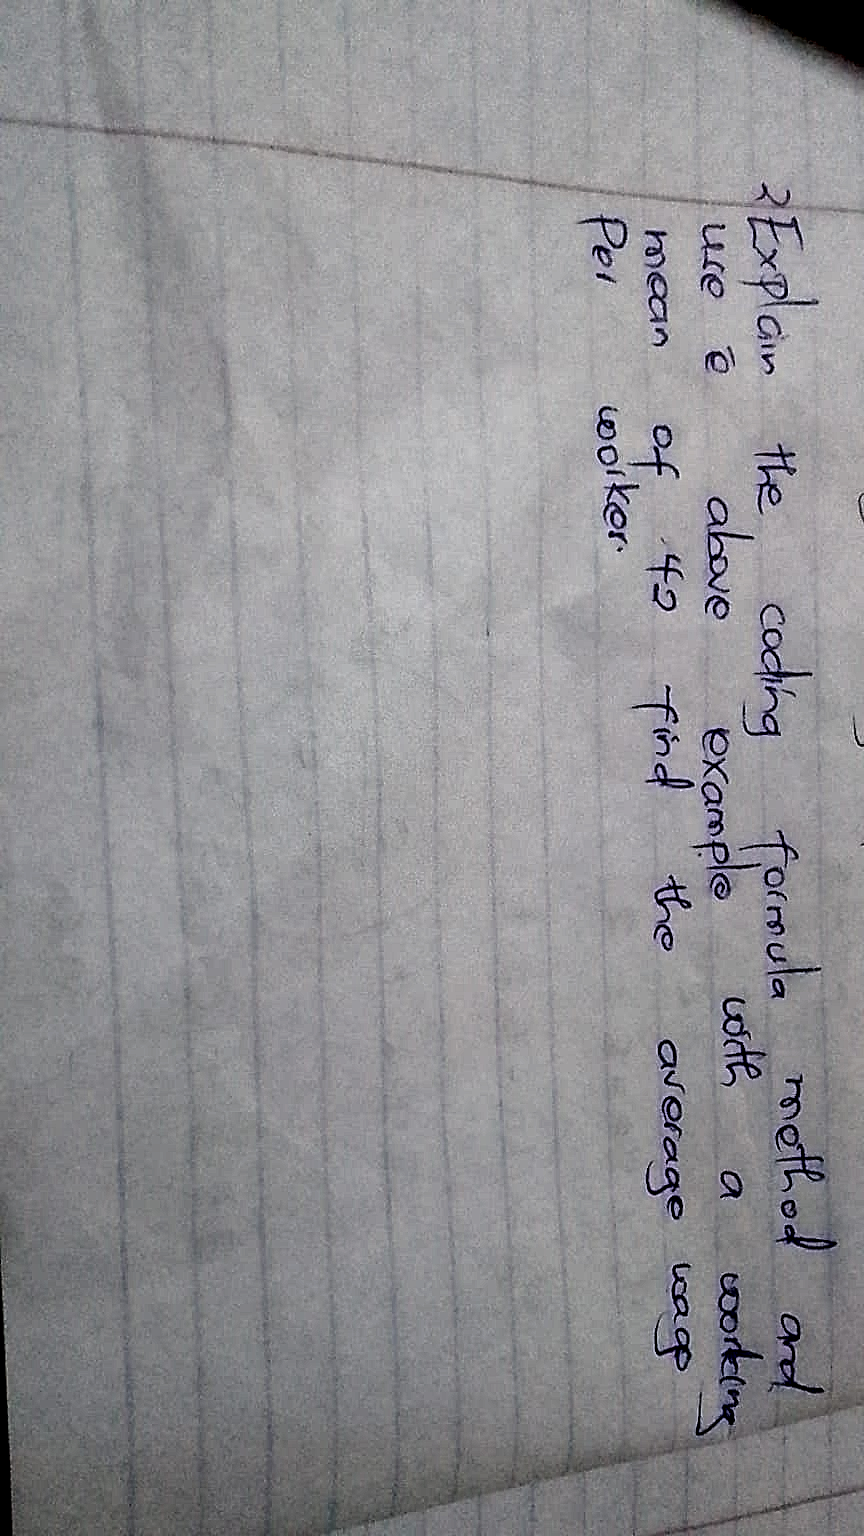 2 Explain the coding formula method and
use ē above example with a working
mean of 42 find the average wage
Per worker.